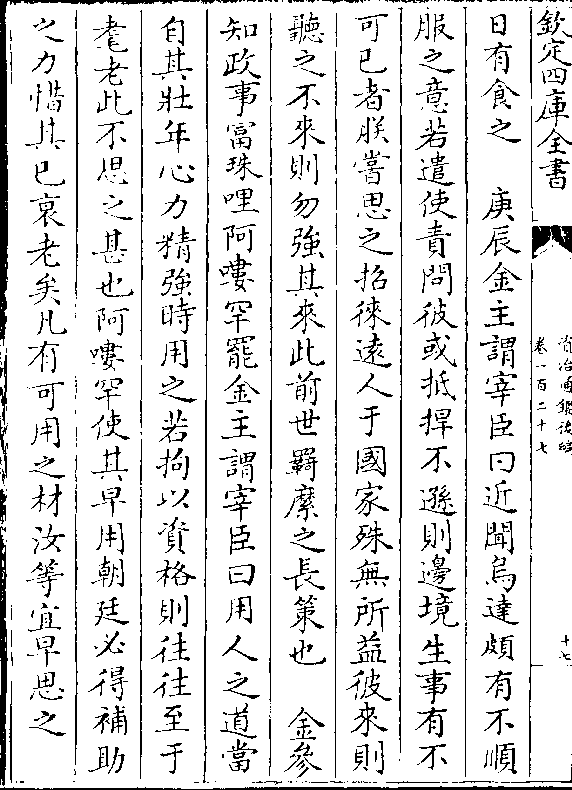 欽定四庫全書
資治通鑑後編
卷一百二十七
十七
日有食之　庚辰金主謂宰臣曰近聞烏達頗有不順
服之意若遣使責問彼或抵捍不遜則邊境生事有不
可已者朕嘗思之招徠遠人于國家殊無所益彼來則
聽之不來則勿強其來此前世羈縻之長策也　金參
知政事富珠哩阿嘍罕罷金主謂宰臣曰用人之道當
自其壯年心力精強時用之若拘以資格則往往至于
耄老此不思之甚也阿嘍罕使其早用朝廷必得補助
之力惜其已衰老矣凡有可用之材汝等宜早思之